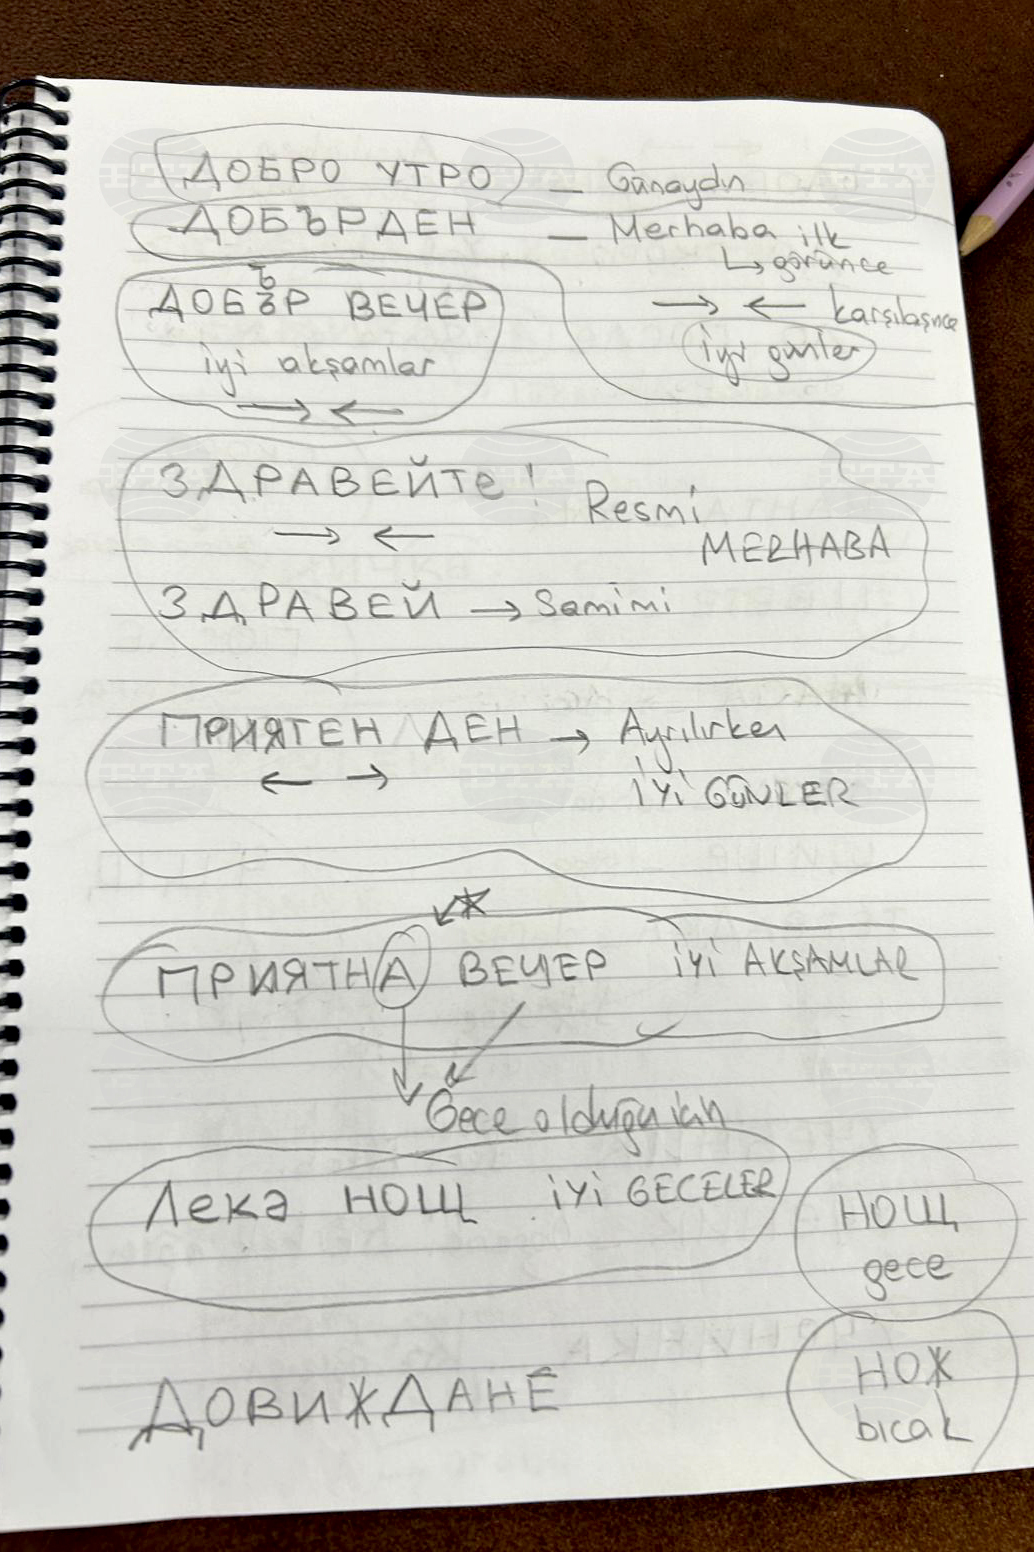 ДОБРО УТРО — Günaydın
ДОБЪРДЕН — Merhaba ilk
↳ görünce
ДОБЪР ВЕЧЕР → ← karşılaşınca
iyi akşamlar iyi günler
→ ←
ЗДРАВЕЙТе! Resmi
→ ← MERHABA
ЗДРАВЕЙ → Samimi
ПРИЯТЕН ДЕН → Ayrılırken
← → İYİ GÜNLER
ПРИЯТНА ВЕЧЕР İYİ AKŞAMLAR
Gece olduğu için
Лека НОЩ İYİ GECELER
НОЩ
gece
ДОВИЖДАНЕ
НОЖ
bıcak